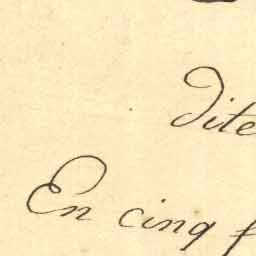 dite
En cinq